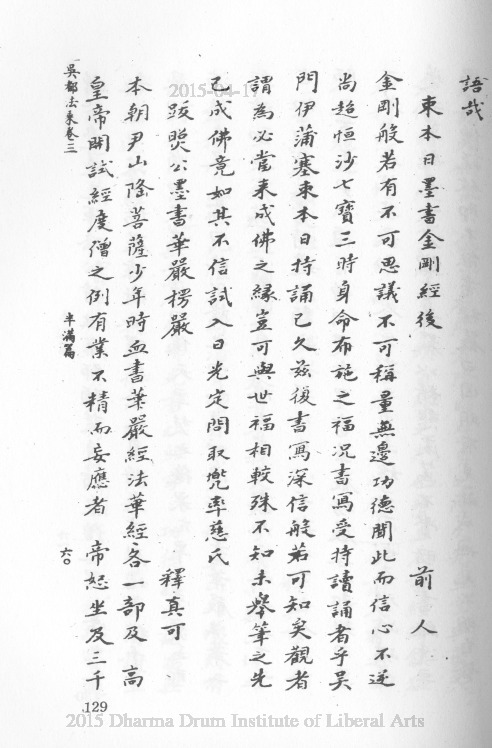 語哉
束本日墨書金剛經後
前人
金剛般若有不可思議不可稱量無邊功德聞此而信心不逆
尚超恒沙七寶三時身命布施之福况書寫受持讀誦者乎吴
門伊蒲塞束本日持誦已久茲復書寫深信般若可知矣觀者
謂為必當来成佛之緣豈可與世福相較殊不知未舉筆之先
已成佛竟如其不信試入日光定問取兜率慈氏
跋煚公墨書華嚴楞嚴
釋真可
本朝尹山隆菩薩少年時血書華嚴經法華經各一部及 高
皇帝開試經度僧之例有業不精而妄應者 帝怒坐及三千
吴都法乘卷三
半滿篇
六〇
129
2015-04-17
2015 Dharma Drum Institute of Liberal Arts